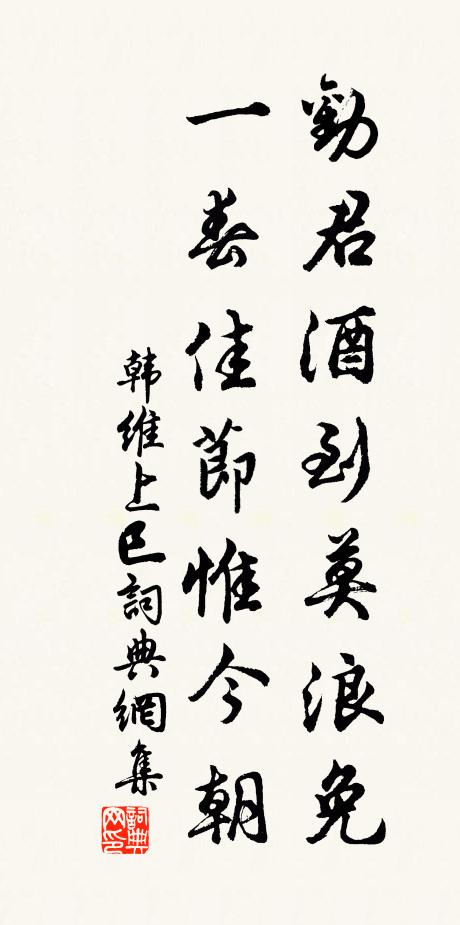 勸君酒到莫浪免
一春佳節惟今朝
韩維上巳詞典網集
詞典网印